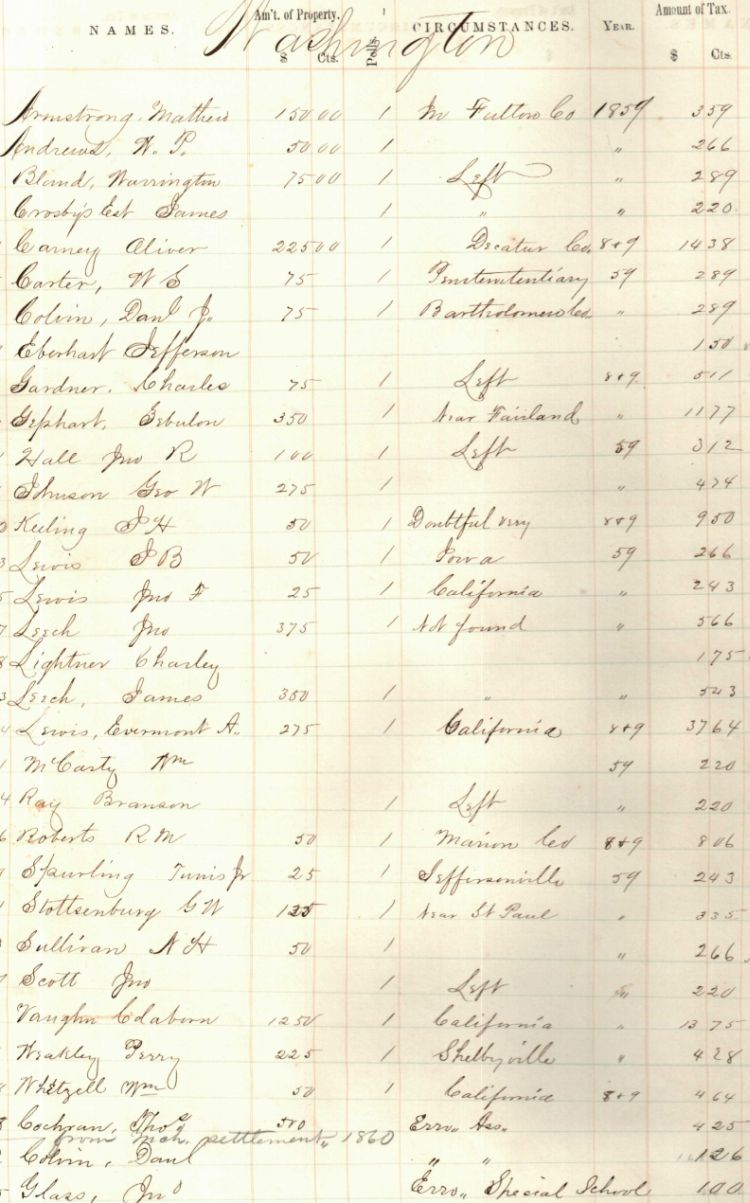 NAMES. Am't. of Property. Polls. CIRCUMSTANCES. YEAR. Amount of Tax.
Washington
$ Cts. $ Cts.
Armstrong, Mathew 150 00 1 In Fulton Co 1859 3 59
Andrews, W. P. 50 00 1 " 2 66
Bland, Warrington 75 00 1 Left " 2 89
Crosby's Est James 1 " " 2 20
Carney Oliver 225 00 1 Decatur Co. 8+9 14 38
Carter, W S 75 1 Penitentiary 59 2 89
Colvin, Danl Jr. 75 1 Bartholomew Co. " 2 89
Eberhart Jefferson 1 50
Gardner, Charles 75 1 Left 8+9 5 11
Gephart, Zebulon 350 1 Near Fairland " 11 77
Hall Jno R 100 1 Left 59 3 12
Johnson Geo W 275 1 " 4 74
Keeling J H 50 1 Doubtful very 8+9 9 50
Lewis J B 50 1 Iowa 59 2 66
Lewis Jno F 25 1 California " 2 43
Leech Jno 375 1 Not found " 5 66
Lightner Charley 1 75
Leech, James 350 1 " " 5 43
Lewis, Evermont A. 275 1 California 8+9 37 64
McCarty Wm 59 2 20
Ray Branson 1 Left " 2 20
Roberts R M 50 1 Marion Co 8+9 8 06
Spurling Tunis Jr 25 1 Jeffersonville 59 2 43
Stottsenburg G W 125 1 Near St Paul " 3 35
Sullivan N H 50 1 " 2 66
Scott Jno 1 Left " 2 20
Vaughn Claborn 1250 1 California " 13 75
Weakley Perry 225 1 Shelbyville " 4 28
Whetzell Wm 50 1 California 8+9 4 64
Cochran, Thos 500 Erro,, Ass. 4 25
from Mch. settlement,, 1860
Colvin, Danl " " 1 26
Glass, Jno Erro,, Special School 1 00